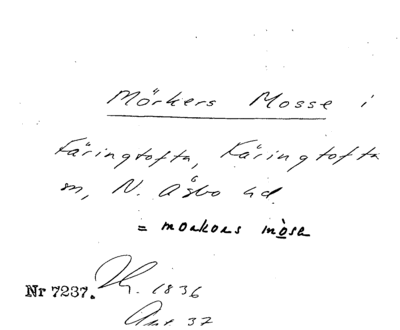 Mörkers Mosse i
Färingtofta, Färingtofta
sn, N. Åsbo hd.
= morkors mosa
Nr 7237.
1836
Ant. 37